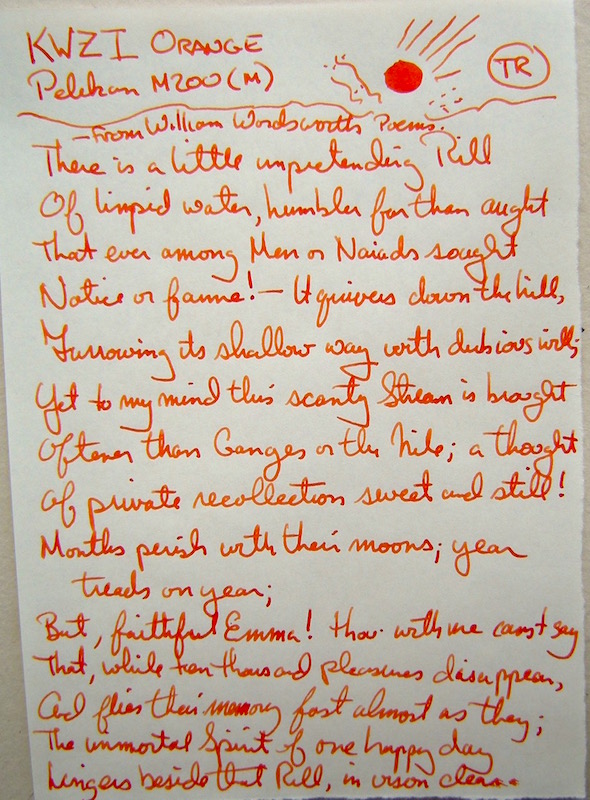 KWZI ORANGE
Pelikan M200 (M)
TR
- From William Wordsworth Poems.
There is a little unpretending Rill
Of limpid water, humbler far than aught
That ever among Men or Naiads sought
Notice or fame! – It quivers down the hill,
Furrowing its shallow way with dubious will;
Yet to my mind this scanty Stream is brought
Oftener than Ganges or the Nile; a thought
Of private recollection sweet and still!
Months perish with their moons; year
treads on year;
But, faithful Emma! thou with me canst say
That, while ten thousand pleasures disappear,
And flies their memory fast almost as they;
The immortal Spirit of one happy day
Lingers beside that Rill, in vison clear..